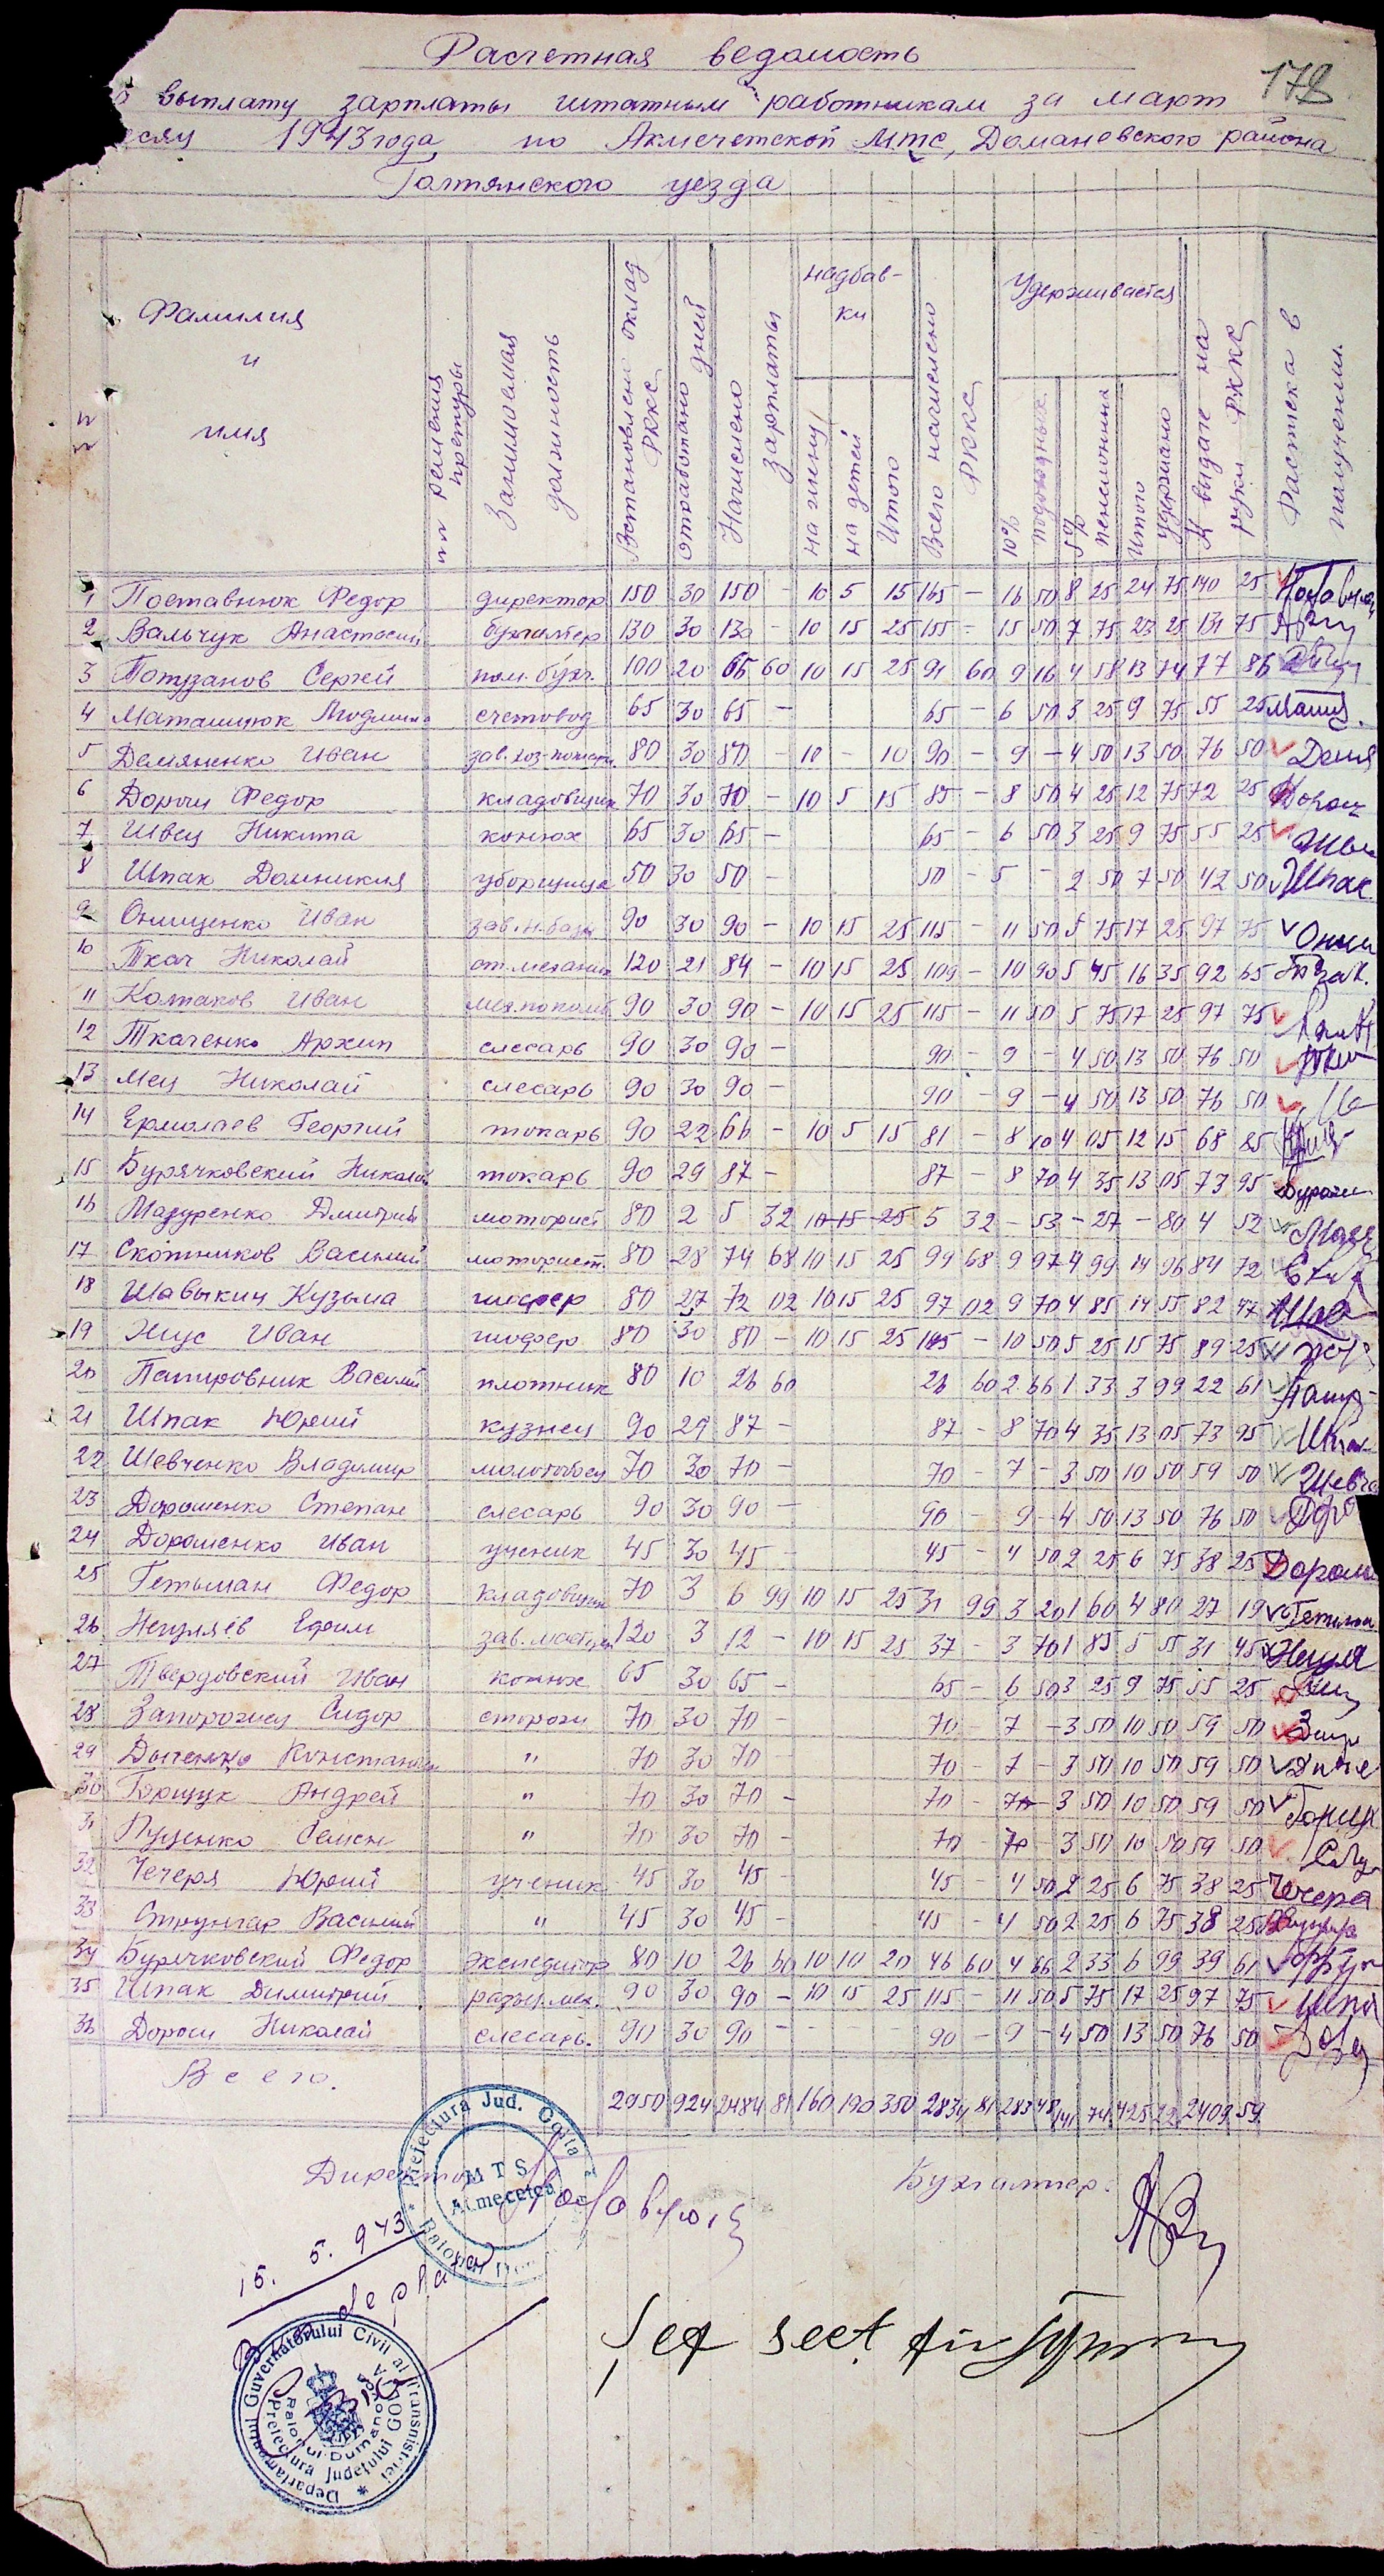 Расчетная ведомость
178
выплату зарплаты штатным работникам за март
есяц 1943 года, по Акмечетской МТС, Доманевского района
Голтянского уезда
Фамилия и имя
по решения претуры
Занимаемая должность
оклад РККС
отработано дней
Начислено зарплаты
надбав-ки
на жену
на детей
Итого
Всего начислено РККС
Удерживается
10% подоходных
5% пенсионных
Итого удержано
К выдаче на руки РККС
Расписка в
1 Поставнюк Федор директор 150 30 150 10 5 15 165 – 16 50 8 25 24 75 140 25
2 Вальчук Анастасий бухгалтер 130 30 130 – 10 15 25 155 – 15 50 7 75 23 25 131 75
3 Сергей пом. бухг. 100 20 66 60 10 15 25 91 60 9 16 4 58 13 74 77 86
4 счетовод 65 30 65 – 65 – 6 50 3 25 9 75 55 25
5 Демяненко Иван 80 30 80 – 10 – 10 90 – 9 – 4 50 13 50 76 50
6 Дорош Федор кладовщик 70 30 70 – 10 5 15 85 – 8 50 4 25 12 75 72 25
7 Швец Никита конюх 65 30 65 – 65 – 6 50 3 25 9 75 55 25
8 Шпак Домникия уборщица 50 30 50 – 50 – 5 – 2 50 7 50 42 50 Шпак
9 Онищенко Иван зав. н. базы 90 30 90 – 10 15 25 115 – 11 50 5 75 17 25 97 75
10 Ткач Николай ст. механик 120 21 84 – 10 15 25 109 – 10 90 5 45 16 35 92 65
11 Колпаков Иван 90 30 90 – 10 15 25 115 – 11 50 5 75 17 25 97 75
12 Ткаченко Архип слесарь 90 30 90 – 90 – 9 – 4 50 13 50 76 50
13 Мец Николай слесарь 90 30 90 – 90 – 9 – 4 50 13 50 76 50
14 Ермолаев Георгий токарь 90 22 66 – 10 5 15 81 – 8 10 4 05 12 15 68 85
15 Бурячковский Николай токарь 90 29 87 – 87 – 8 70 4 35 13 05 73 95
16 Мазуренко Дмитрий моторист 80 2 5 32 10 15 25 5 32 – 53 – 27 – 80 4 52
17 Скотников Василий моторист. 80 28 74 68 10 15 25 99 68 9 97 4 99 14 96 84 72
18 Шавыкин Кузьма шофер 80 27 72 02 10 15 25 97 02 9 70 4 85 14 55 82 47
19 Жус Иван шофер 80 30 80 – 10 15 25 105 – 10 50 5 25 15 75 89 25
20 Папировник Василий плотник 80 10 26 60 26 60 2 66 1 33 3 99 22 61
21 Шпак Юрий кузнец 90 29 87 – 87 – 8 70 4 35 13 05 73 95
22 Шевченко Владимир молотобоец 70 30 70 – 70 – 7 – 3 50 10 50 59 50
23 Дорошенко Степан слесарь 90 30 90 – 90 – 9 – 4 50 13 50 76 50
24 Дорошенко Иван ученик 45 30 45 – 45 – 4 50 2 25 6 75 38 25
25 Гетьман Федор кладовщик 70 3 6 99 10 15 25 31 99 3 20 1 60 4 80 27 19
26 Ефим 120 3 12 – 10 15 25 37 – 3 70 1 85 5 55 31 45
27 Твердовский Иван конюх 65 30 65 – 65 – 6 50 3 25 9 75 55 25
28 Запорожец Сидор сторож 70 30 70 – 70 – 7 – 3 50 10 50 59 50
29 Константин " 70 30 70 70 – 7 – 3 50 10 50 59 50
30 Горщук Андрей " 70 30 70 – 70 – 7 – 3 50 10 50 59 50
31 Луценко Семен " 70 30 70 – 70 – 7 – 3 50 10 50 59 50
32 Чечеря Юрий ученик 45 30 45 – 45 – 4 50 2 25 6 75 38 25
33 Василий " 45 30 45 – 45 – 4 50 2 25 6 75 38 25
34 Бурячковский Федор экспедитор 80 10 26 60 10 10 20 46 60 4 66 2 33 6 99 39 61
35 Шпак Димитрий 90 30 90 – 10 15 25 115 – 11 50 5 75 17 25 97 75
36 Дорош Николай слесарь. 90 30 90 – 90 – 9 – 4 50 13 50 76 50
Всего. 2950 924 2484 81 160 190 350 2834 81 283 48 141 74 425 22 2409 59
Директор
Prefectura Jud. Golta
MTS
Acmecetca
Бухгалтер.
15. 5. 943
Bun de plată
Șef sect. fin.
Departamentul Guvernatorului Civil al Transnistriei
Prefectura Județului GOLTA
Raionul Dumanovca